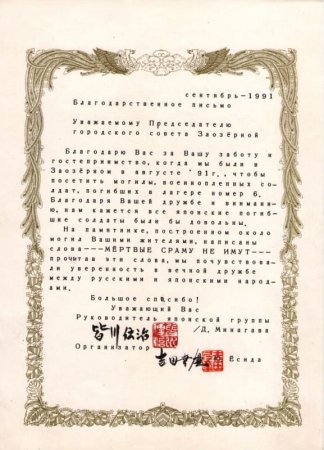 сентябрь-1991
Благодарственное письмо
Уважаемому Председателю
городского совета Заозёрной
Благодарю Вас за Вашу заботу и
гостеприимство, когда мы были в
Заозёрном в августе '91г., чтобы
посетить могилы, военнопленных со-
лдат, погибших в лагере номер 6.
Благодаря Вашей дружбе и внимани-
ю, нам кажется все японские погиб-
шие солдаты были бы довольны.
На памятнике, построенном около
могил Вашими жителями, написаны
слова---МЁРТВЫЕ СРАМУ НЕ ИМУТ---
прочитав эти слова, мы почувствова-
ли уверенность в вечной дружбе
между русскими и японскими народ-
ами.
Большое спасибо!
Уважающий Вас
Руководитель японской группы
皆川 /Д. Минагава
Организатор
吉田 Ёсида